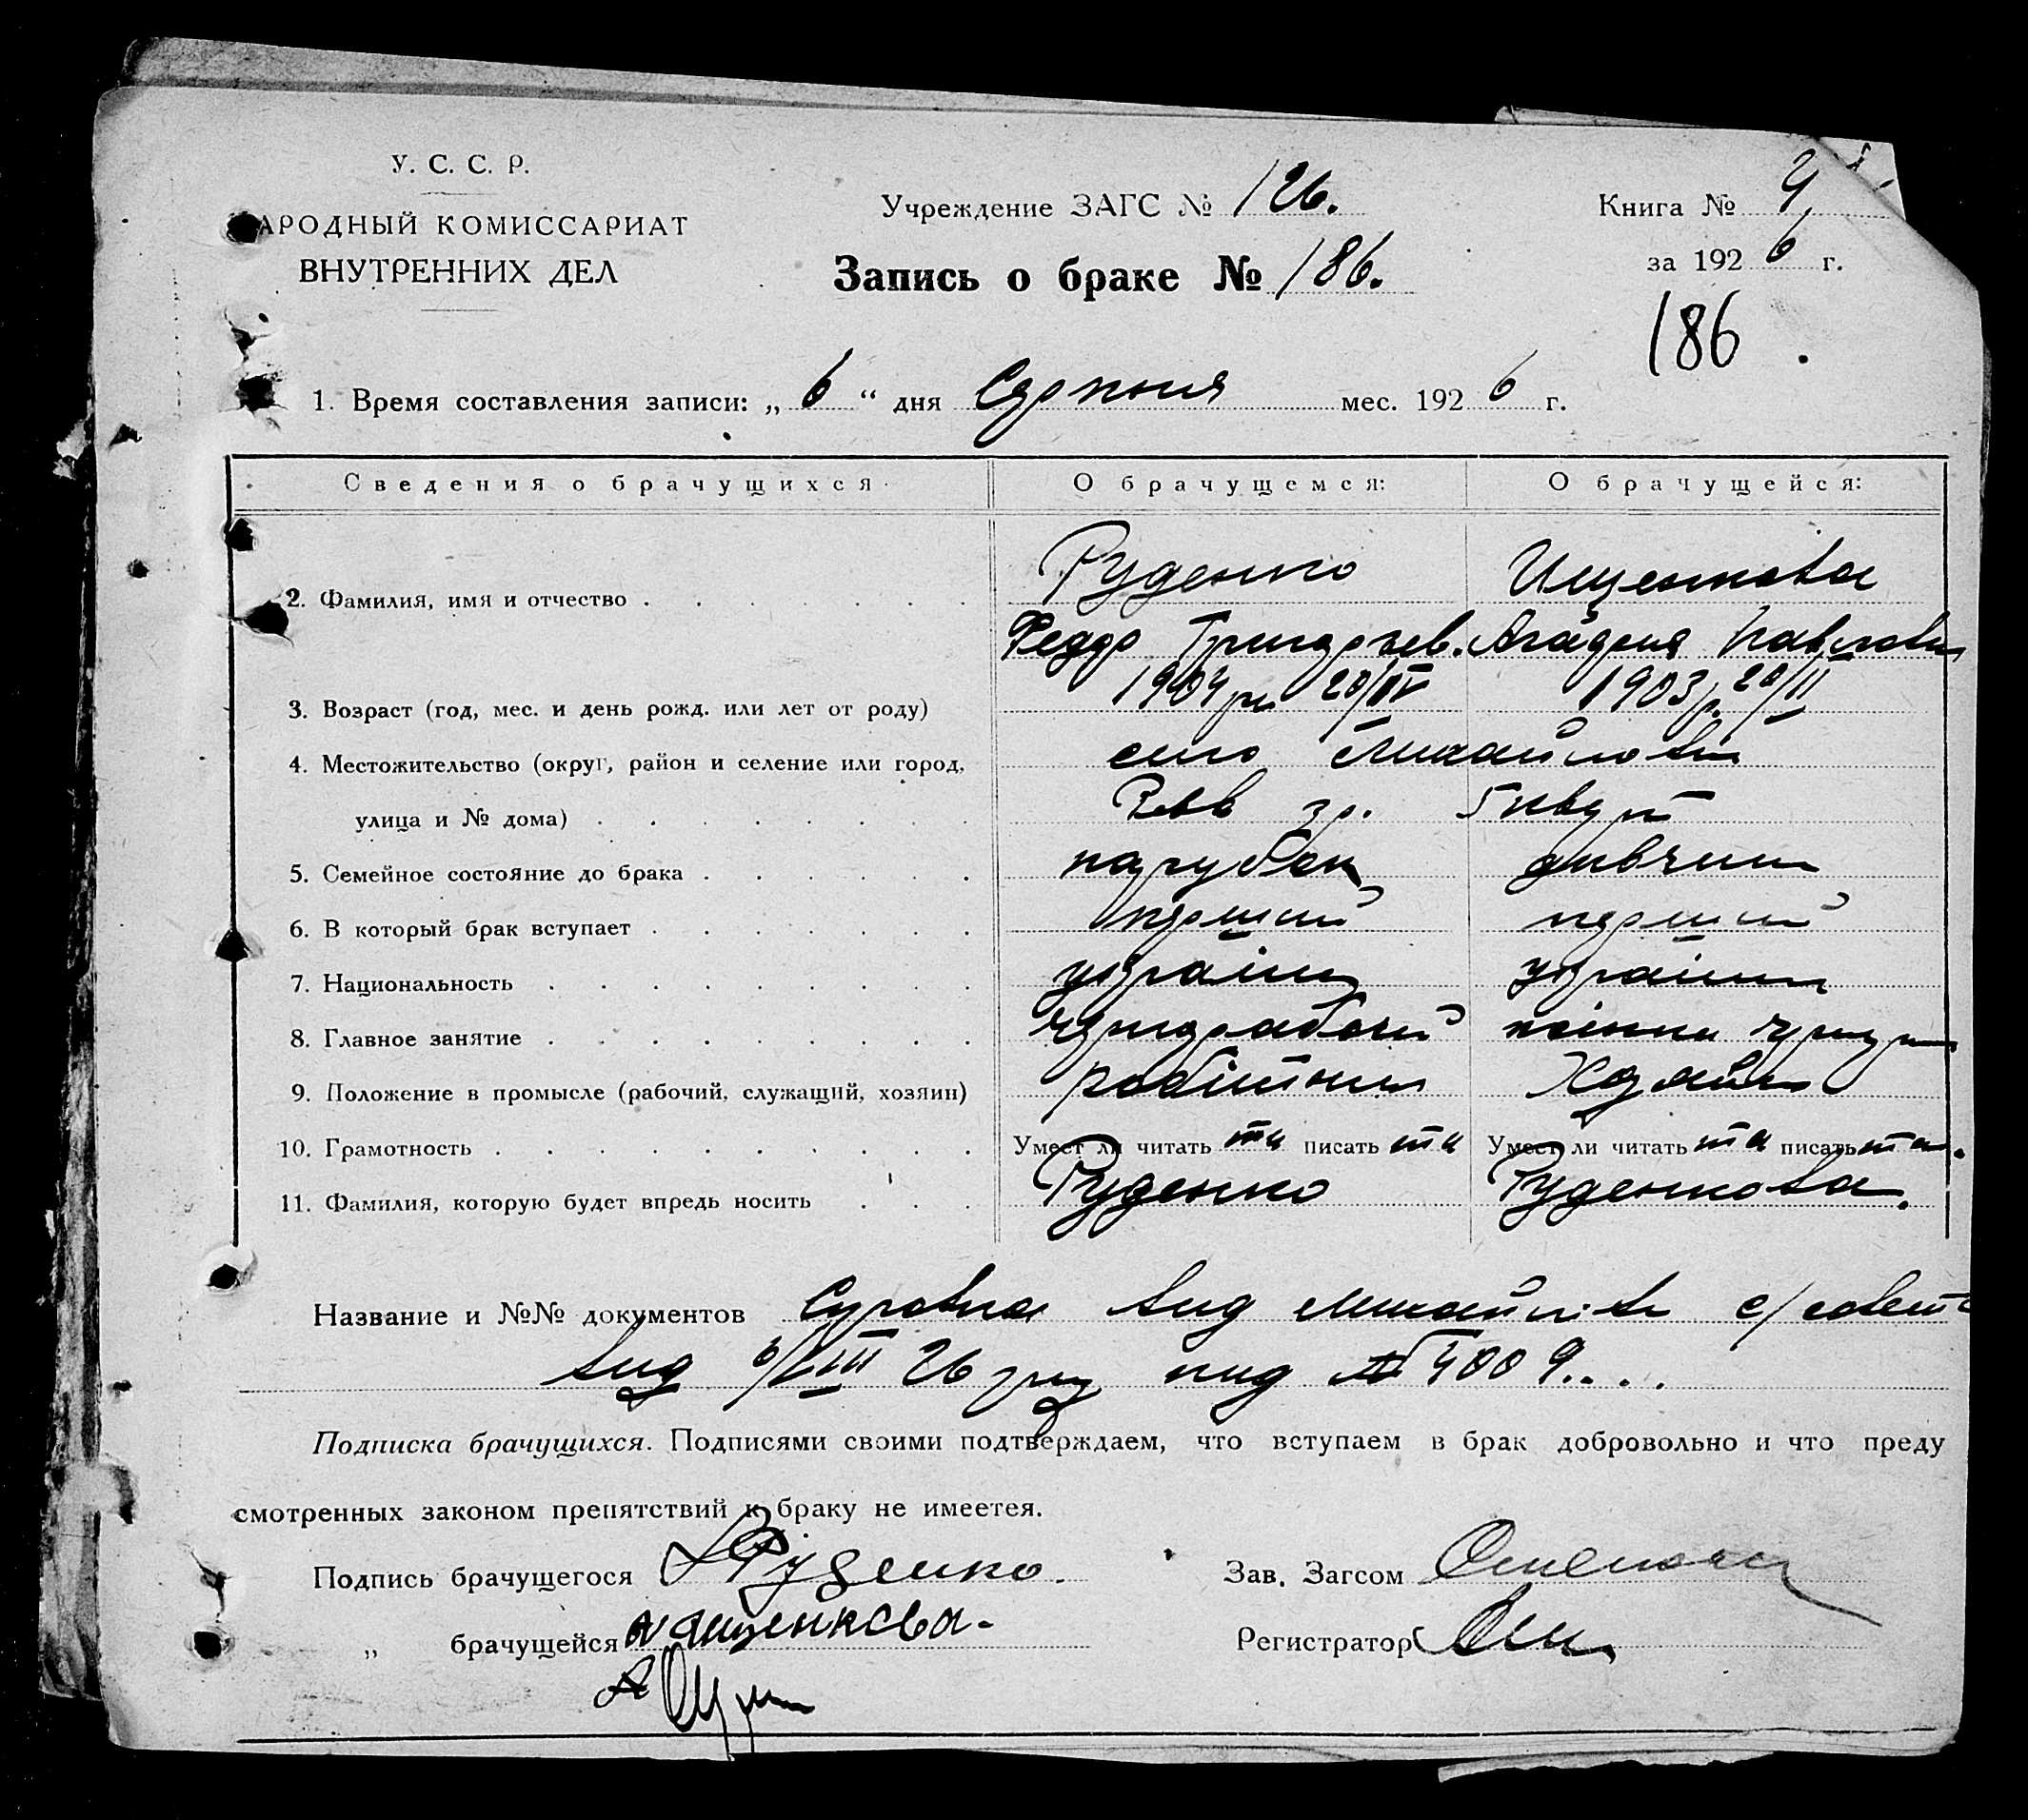 У. С. С. Р.
АРОДНЫЙ КОМИССАРИАТ
ВНУТРЕННИХ ДЕЛ
Учреждение ЗАГС № 126.
Запись о браке № 186.
Книга №
за 192 6 г.
186.
1. Время составления записи: „ 6 “ дня Серпня мес. 192 6 г.
Сведения о брачущихся О брачущемся: О брачущейся:
2. Фамилия, имя и отчество . . . . . . . Руденко Ищенкова
Федор Григорьев. Павловн
3. Возраст (год, мес. и день рожд. или лет от роду) 1904 20/IV 1903 р. 20/II
4. Местожительство (округ, район и селение или город, село Михайловка
улица и № дома) . . . . . . . .
5. Семейное состояние до брака . . . . . . парубок дивчина
6. В который брак вступает . . . . . . . перший перший
7. Национальность . . . . . . . . . україн україн
8. Главное занятие . . . . . . . . . чернорабочий
9. Положение в промысле (рабочий, служащий, хозяин) робітник
10. Грамотность . . . . . . . . . . Умеет ли читать та писать та Умеет ли читать та писать та.
11. Фамилия, которую будет впредь носить . . . Руденко Руденкова.
Название и №№ документов вид с/совета
вид 6/VIII 26 року пид № 4009....
Подписка брачущихся. Подписями своими подтверждаем, что вступаем в брак добровольно и что преду
смотренных законом препятствий к браку не имеетея.
Подпись брачущегося Руденко. Зав. Загсом
„ брачущейся Ищенкова. Регистратор